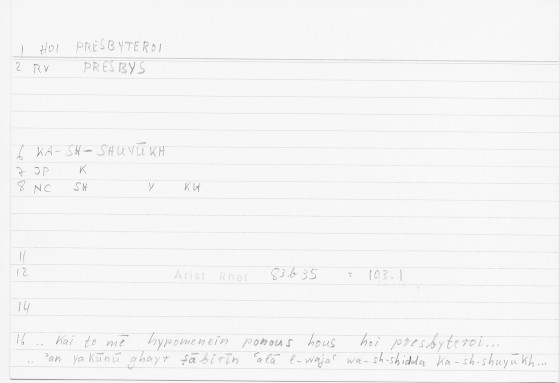 1 HOI PRESBYTEROI
2 RV PRESBYS
6 KA-SH-SHUYŪKH
7 JP K
8 NC SH Y KH
11
12 Arist Rhet 83b35 = 103.1
14
16 .. kai to mē hypomenein ponous hous hoi presbyteroi...
.. 'an yakūnū ghayr ṣābirīn 'alā l-waja' wa-sh-shidda ka-sh-shuyūkh...